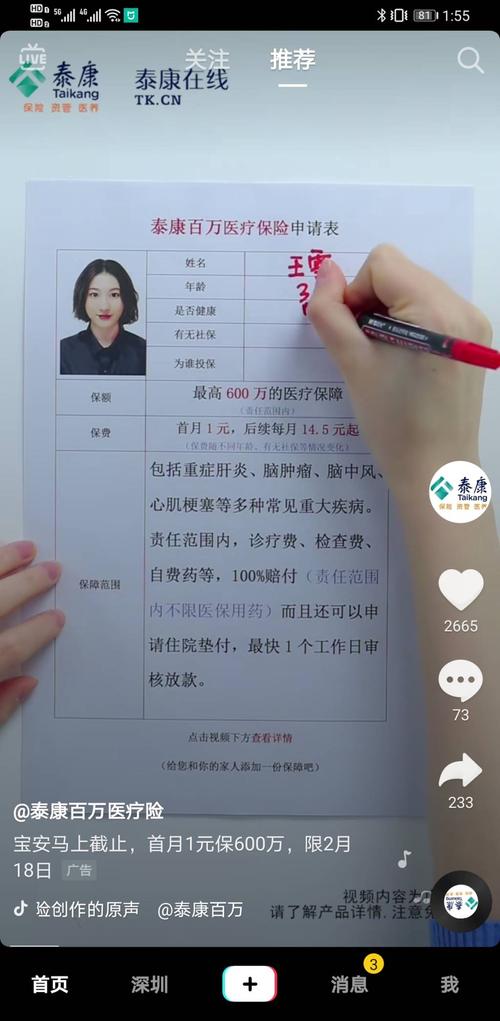 HD 5G 4G 81 1:55
HD 2
LIVE 关注 推荐
泰康
Taikang
保险 资管 医养
泰康在线
TK.CN
泰康百万医疗保险申请表
姓名 王雪
年龄
是否健康
有无社保
为谁投保
保额 最高 600 万的医疗保障
(责任范围内)
保费 首月 1 元，后续每月 14.5 元起
(保费随不同年龄、有无社保等情况变化)
保障范围
包括重症肝炎、脑肿瘤、脑中风、
心肌梗塞等多种常见重大疾病。
责任范围内，诊疗费、检查费、
自费药等，100%赔付（责任范围
内不限医保用药）而且还可以申
请住院垫付，最快 1 个工作日审
核放款。
点击视频下方查看详情
（给您和你的家人添加一份保障吧）
泰康
Taikang
保险 资管 医养
2665
73
233
@泰康百万医疗险
宝安马上截止，首月1元保600万，限2月
18日 广告
视频内容为
请了解产品详情.注意免
险创作的原声 @泰康百万
首页 深圳 + 消息 3 我